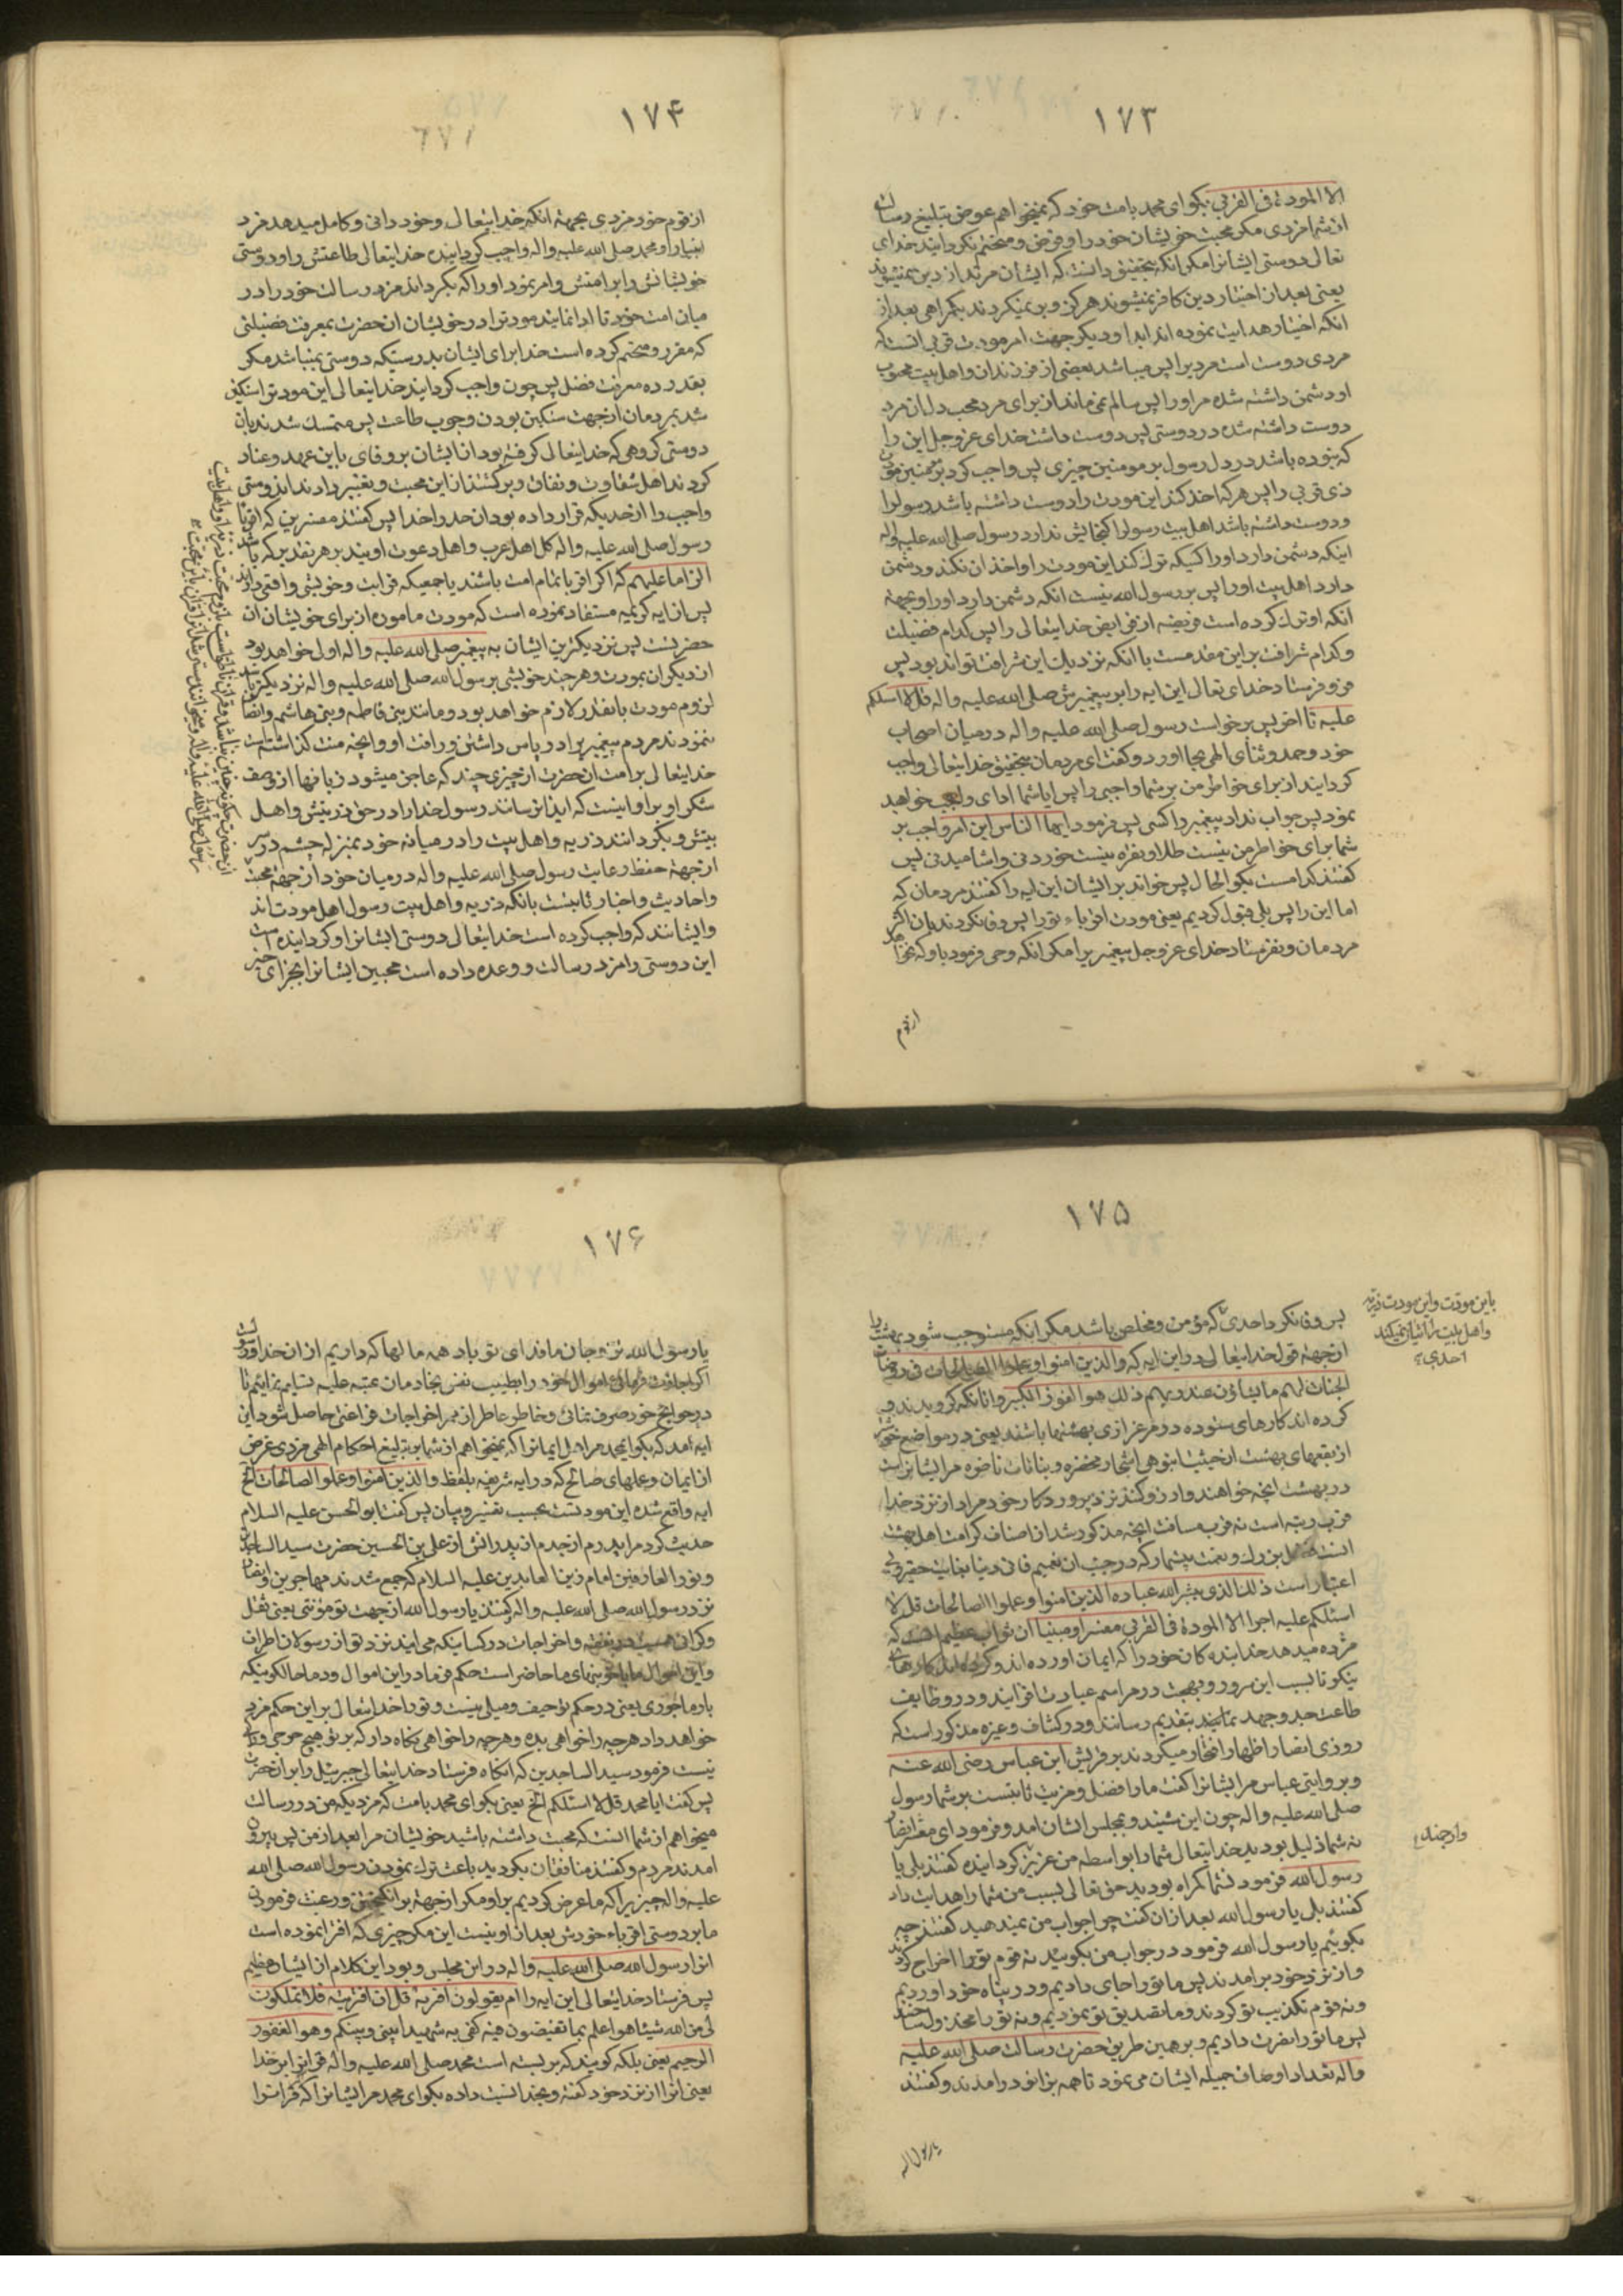 ۱۷۳
الا المودة فی القربی بکوای محمد بامت خود که نمیخواهم عوض تبلیغ رسالت
از شما مزدی مکر محبت خویشان خود را و فرض و متحتم نکردانید خدای
تعالی دوستی ایشانرا مکر انکه بتحقیق دانست که ایشان مرتد از دین نمیشوند
یعنی بعد از اختیار دین کافر نمیشوند هرکز و بر نمیکردند بکمراهی بعد از
انکه اختیار هدایت نموده اند ابدا و دیکر جهت امر مودت قربی انستکه
مردی دوست است مردیرا پس میباشد بعضی از فرزندان و اهل بیت محبوب
او دشمن داشته شده مر او را پس سالم نمی ماند از برای مرد محب دل ان مرد
دوست داشته شده در دوستی پس دوست داشت خدای عز وجل این را
که نبوده باشد در دل رسول بر مومنین چیزی پس واجب کرد بر مومنین
ذی قربی را پس هرکه اخذ کند این مودت را و دوست داشته باشد رسولرا
و دوست داشته باشد اهل بیت رسولرا کنجایش ندارد رسول صلی الله علیه واله
اینکه دشمن دارد او را کسیکه ترک کند این مودت را و اخذ ان نکند و دشمن
دارد اهل بیت او را پس بر رسول الله نیست انکه دشمن دارد او را و بجهة
انکه او ترک کرده است فریضه از فرایض خدایتعالی را پس کدام فضیلت
و کدام شرافت بر این مقدمست یا انکه نزدیک این شرافت تواند بود پس
فرو فرستاد خدای تعالی این ایه را بر پیغمبرش صلی الله علیه واله قل لا اسئلکم
علیه تا اخر پس برخواست رسول صلی الله علیه واله در میان اصحاب
خود و حمد و ثنای الهی بجا اورد و کفت ای مردمان بتحقیق خدایتعالی واجب
کردانید از برای خواطر من بر شما واجبی را پس ایا شما ادای واجب خواهید
نمود پس جواب نداد پیغمبر را کسی پس فرمود ایها الناس این امر واجب بر
شما برای خواطر من نیست طلا و نقره نیست خوردنی و اشامیدنی پس
کفتند کدامست بکو الحال پس خواند بر ایشان این ایه را کفتند مردمان که
اما این را پس بلی قبول کردیم یعنی مودت اقرباء تو را پس وفا نکردند بان اکثر
مردمان و نفرستاد خدای عز وجل پیغمبریرا مکر انکه وحی فرمود باو که نخواهد
از قوم
۱۷۴
از قوم خود مزدی بجهة انکه خدایتعالی و خود دانی و کامل میدهد مزد
انبیا را و محمد صلی الله علیه واله واجب کردانیده خدایتعالی طاعتش را و دوستی
خویشانش را بر امتش و امر نمود او را که بکرداند مزد رسالت خود را در
میان امت خود تا ادا نمایند مودترا در خویشان انحضرت بمعرفت فضیلتی
که مقرر و متحتم کرده است خدا برای ایشان بدرستیکه دوستی نمیباشد مکر
بقدر ده معرفت فضل پس چون واجب کردانید خدایتعالی این مودترا سنکین
شد بمردمان از جهت سنکین بودن وجوب طاعت پس متمسک شدند بان
دوستی کروهی که خدایتعالی کرفته بود از ایشان بر وفای باین عهد و عناد
کردند اهل شقاوت و نفاق و برکشتند از این محبت و تغییر دادند انذوستی
واجب را از حدیکه قرار داده بود انحد را خدا پس کفتند مفسرین که اقربا
رسول صلی الله علیه واله کل اهل عرب و اهل دعوت اویند بر هر تقدیر که باشد
الزاما علیهم که اکر اقربا تمام امت باشند یا جمعیکه قرابت و خویشی واقعی دارند
پس از ایه کریمه مستفاد نموده است که مودت ماموره از برای خویشان ان
حضرتست پس نزدیکترین ایشان به پیغمبر صلی الله علیه واله اولی خواهد بود
از دیکران بمودت و هر چند خویشی بر سول الله صلی الله علیه واله نزدیکتر باشد
لزوم مودت بانقدر لازم خواهد بود و مانند بنی فاطمه و بنی هاشم و انصاف
ننمودند مردم پیغمبر را در پاس داشتن و رافت او و انچه منت کذاشته است
خدایتعالی بر امت انحضرت از چیزی چند که عاجز میشود زبانها از وصف
شکر او بر او اینست که ایذا نرسانند رسول خدا را در حق ذریتش و اهل
بیتش و بکردانند ذریه و اهل بیت را در میانه خود بمنزله چشم در سر
از جهة حفظ رعایت رسول صلی الله علیه واله در میان خود از جهة محبت
و احادیث و اخبار ثابتست بانکه ذریه و اهل بیت رسول اهل مودت اند
و ایشانند که واجب کرده است خدایتعالی دوستی ایشانرا و کردانیده است
این دوستی را مزد رسالت و وعده داده است محبین ایشانرا بجزای خیر
۱۷۵
باین مودت و این مودت ذریه
و اهل بیت را نیاز نمیکند
احدی
پس وفا نکرد احدی که مؤمن و مخلص باشد مکر انکه مستوجب شود بهشت را
از جهة قول خدایتعالی در این ایه که والذین امنوا وعملوا الصالحات فی روضات
الجنات لهم ما یشاؤن عند ربهم ذلک هو الفوز الکبیر و انانکه کرویدند و
کرده اند کارهای ستوده در مرغزاری بهشتها باشند یعنی در مواضع خوشتر
از بقعهای بهشت از حیثیت انبوهی اشجار مخضره و نباتات ناضره مر ایشانراست
در بهشت انچه خواهند و ارزو کنند نزد پروردکار خود مراد از نزد خدا
قرب رتبه است نه قرب مسافت انچه مذکور شد از اصناف کرامت اهل بهشت
انست فضل بزرک و نعمت بیشمار که در جنب ان نعیم فانی دنیا بغایت حقیر و بی
اعتبار است ذلک الذی یبشر الله عباده الذین امنوا وعملوا الصالحات قل لا
اسئلکم علیه اجرا الا المودة فی القربی مفسرا و مبینا ان ثواب عظیم انست که
مژده میدهد خدا بنده کان خود را که ایمان اورده اند و کرده اند کارهای
نیکو تا بسبب این سرور و بهجت در مراسم عبادت افزایند و در وظایف
طاعت جد و جهد نمایند بتقدیم رسانند و در کشاف و غیره مذکور است که
روزی انصار اظهار افتخار میکردند بر قریش ابن عباس رضی الله عنه
و بر وایتی عباس مر ایشانرا کفت ما را فضل و مزیت ثابتست بر شما رسول
صلی الله علیه واله چون این شنید و بمجلس ایشان امد و فرمود ای معشر انصار
نه شما ذلیل بودید خدایتعالی شما را بواسطه من عزیز کردانیده کفتند بلی یا
رسول الله فرمود نه شما کمراه بودید حق تعالی بسبب من شما را هدایت داد
کفتند بلی یا رسول الله بعد از ان کفت چرا جواب من نمیدهید کفتند چه
بکوئیم یا رسول الله فرمود در جواب من بکوئید نه قوم تو را اخراج کردند
و از نزد خود براندند پس ما تو را جای دادیم و در پناه خود اوردیم
و نه قوم تکذیب تو کردند و ما تصدیق تو نمودیم و نه تو را مخذول ساختند
پس ما تو را نصرت دادیم و بر همین طریق حضرت رسالت صلی الله علیه
واله تعداد اوصاف جمیله ایشان می نمود تا همه بزانو در امدند و کفتند
یا رسول الله
۱۷۶
یا رسول الله تن و جان ما فدای تو باد همه مالها که داریم از ان خدا و رسول
در حوایج خود صرف نمائی و خاطر عاطر از ممر اخراجات فراغتی حاصل شود این
ایه امد که بکو ای محمد مر اهل ایمانرا که نمیخواهم از شما بر تبلیغ احکام الهی مزدی غرض
از ایمان و عملهای صالح که در ایه شریفه بلفظ والذین امنوا وعملوا الصالحات الخ
ایه واقع شده این مودتست بحسب تفسیر و بیان پس کفت ابو الحسن علیه السلام
حدیث کرد مرا پدرم از جدم از پدرانش از علی بن الحسین حضرت سید الساجدین
و نور العارفین امام زین العابدین علیه السلام که جمع شدند مهاجرین و انصار
نزد رسول الله صلی الله علیه واله کفتند یا رسول الله از جهت تو مؤنتی یعنی ثقل
و کرانی هست در نفقه و اخراجات در کسانیکه می ایند نزد تو از رسولان اطراف
و این اموال ما با خونهای ما حاضر است حکم فرما در این اموال و دماء حالکونیکه
بار ماجوری یعنی در حکم تو حیف و میلی نیست و تو را خدایتعالی بر این حکم مزد
خواهد داد هرچه را خواهی بده و هرچه را خواهی نکاه دار که بر تو هیچ حرجی و
نیست فرمود سید الساجدین که انکاه فرستاد خدایتعالی جبرئیل را بر انحضرت
پس کفت ایا محمد قل لا اسئلکم الخ یعنی بکو ای محمد بامت که مزدیکه من در رسالت
میخواهم از شما انست که محبت داشته باشید خویشان مرا بعد از من پس بیرون
امدند مردم و کفتند منافقان بکردید باعث ترک نمودن رسول الله صلی الله
علیه واله چیزیرا که ما عرض کردیم بر او مکر از جهة بر انکیختن و رغبت فرمودن
ما بر دوستی اقرباء خودش بعد از او نیست این مکر چیزی که افترا نموده است
انرا رسول الله صلی الله علیه واله در این مجلس و بود این کلام از ایشان عظیم
پس فرستاد خدایتعالی این ایه را ام یقولون افتریه قل ان افتریته فلا تملکون
لی من الله شیئا هو اعلم بما تفیضون فیه کفی به شهیدا بینی وبینکم وهو الغفور
الرحیم یعنی بلکه کویند که بر بسته است محمد صلی الله علیه واله قرانرا بر خدا
یعنی انرا از نزد خود کفته و بخدا نسبت داده بکو ای محمد مر ایشانرا که قرانرا